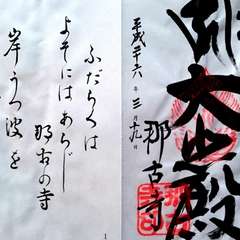 大悲殿
那古寺
平成廿六年三月九日
ふだらくは
よそにはあらじ
那古の寺
岸うつ波を
1